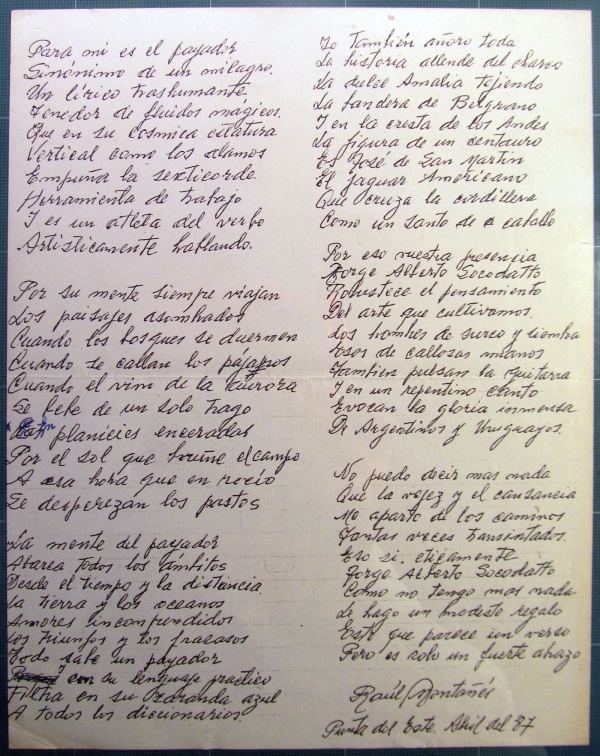 Para mi es el payador
Sinónimo de un milagro.
Un lírico trashumante
Tenedor de fluidos mágicos.
Que en su cosmica estatura
Vertical como los alamos
Empuña la sexticorde
Herramienta de trabajo
I es un atleta del verbo
Artísticamente hablando.
Por su mente siempre viajan
Los paisajes asombrados
Cuando los bosques se duermen
Cuando se callan los pájaros
Cuando el vino de la aurora
Se bebe de un solo trago
En planicies enceradas
Por el sol que bruñe el campo
A esa hora que en rocío
Se desperezan los pastos
La mente del payador
Abarca todos los ámbitos
Desde el tiempo y la distancia
La tierra y los oceanos
Amores incomprendidos
Los triunfos y los fracasos
Todo sabe un payador
con su lenguaje practico
Filtra en su zaranda azul
A todos los diccionarios.
Io también añoro toda
La historia allende del charco
La dulce Amalia tejiendo
La bandera de Belgrano
I en la cresta de los Andes
La figura de un centauro
Es José de San Martín
El jaguar Americano
Que cruza la cordillera
Como un santo de a caballo
Por eso vuestra presencia
Jorge Alberto Socodatto
Robustece el pensamiento
Del arte que cultivamos.
Los hombres de surco y siembra
Esos de callosas manos
Tambien pulsan la guitarra
I en un repentino canto
Evocan la gloria inmensa
De Argentinos y Uruguayos.
No puedo decir mas nada
Que la vejez y el cansancio
Me aparto de los caminos
Tantas veces transitados.
Eso si, eticamente
Jorge Alberto Socodatto
Como no tengo mas nada
Le hago un modesto regalo
Esto que parece un verso
Pero es solo un fuerte abrazo
Raúl Montañés
Punta del Este. Abril del 87